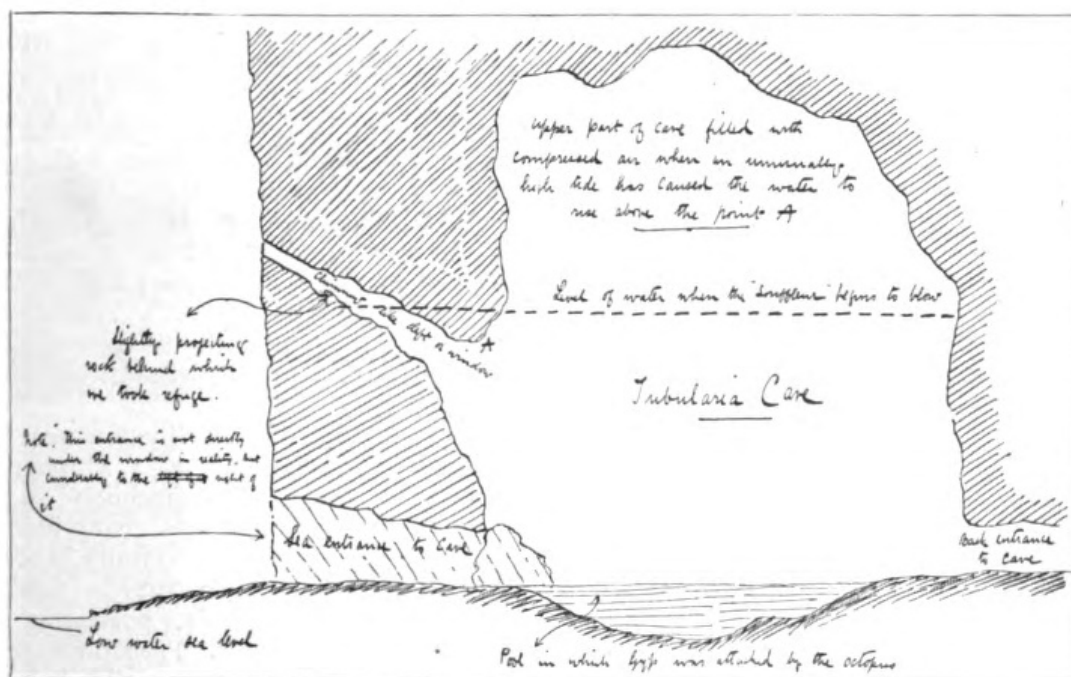 Upper part of cave filled with
compressed air when an unusually
high tide has caused the water to
rise above the point A
Level of water when the "Souffleur" begins to blow
A
Slightly projecting
rock behind which
we took refuge.
Tubularia Cave
Note. This entrance is not directly
under the window in reality, but
considerably to the right of
it
Sea entrance to Cave
Back entrance
to cave
Low water sea level
Pool in which Gyp was attacked by the octopus